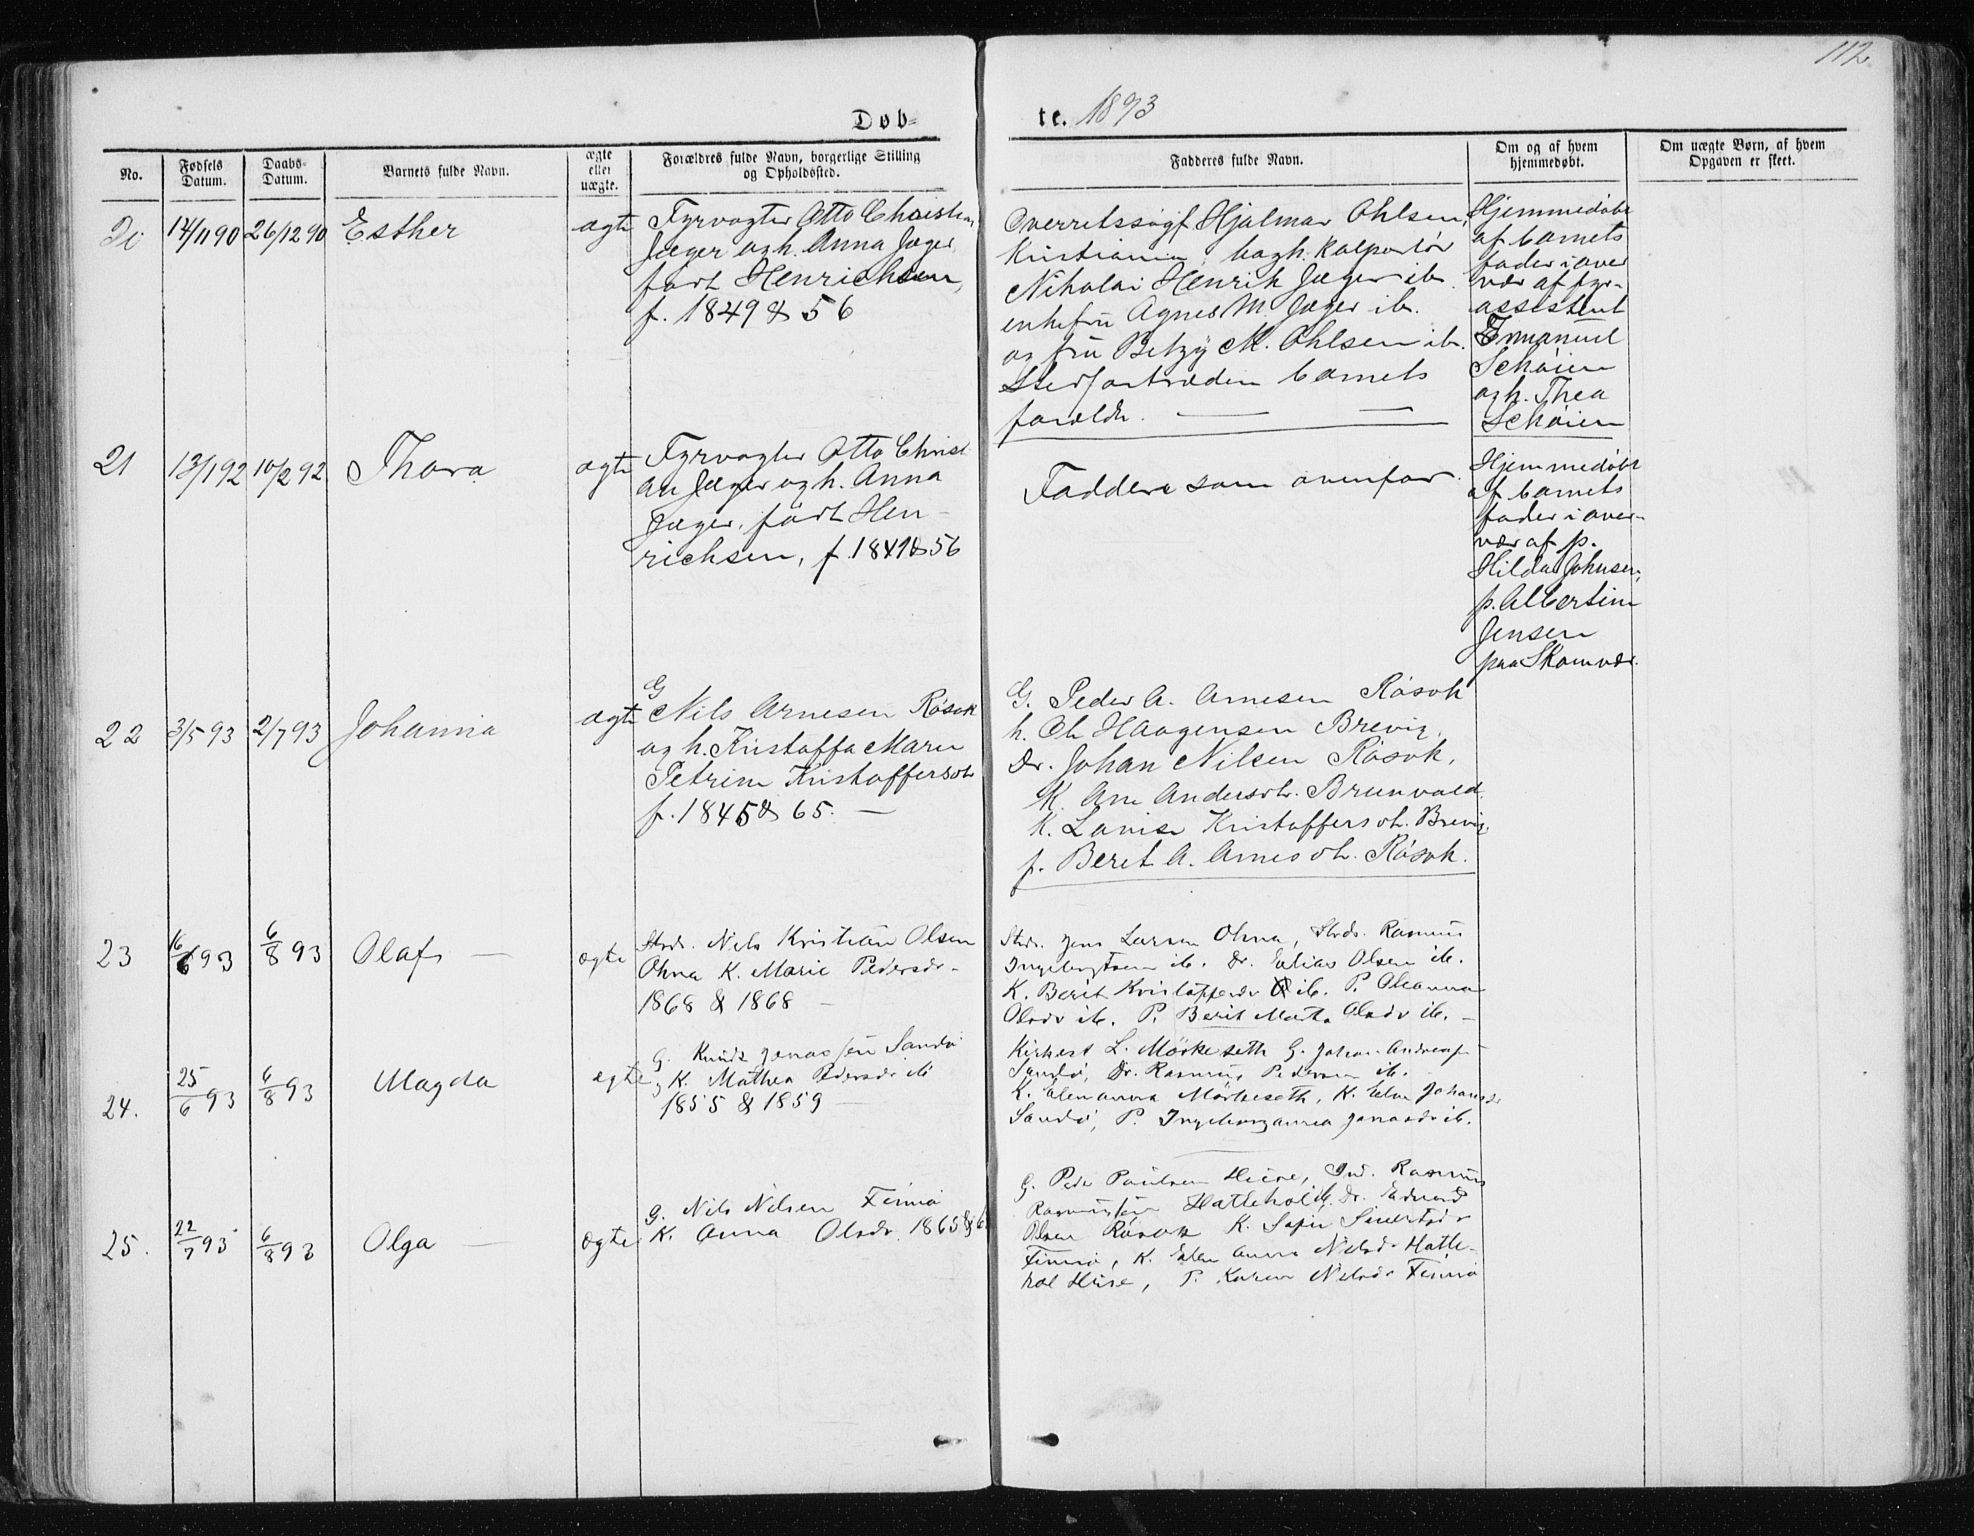 112
Døb-
te. 1893
No.
Fødsels Datum.
Daabs- Datum.
Barnets fulde Navn.
ægte eller uægte.
Forældres fulde Navn, borgerlige Stilling
og Opholdssted.
Fadderes fulde Navn.
Om og af hvem
hjemmedøbt.
Om uægte Børn, af hvem
Opgaven er skeet.
20 14/11 90 26/12 90 Esther ægte
Fyrvogter Otto Christian
Jæger og h. Anna Jæger
født Henrichsen,
f. 1849 & 56
Overretssagf Hjalmar Ohlsen,
Kristiania, bogh. Kolportør
Nikolai Henrik Jæger ib.
enkefru Agnes M. Jæger ib.
og fru Betzy M. Ohlsen ib.
Stedfortræden barnets
foreldr.
Hjemmedøbt
af barnets
fader i over
vær af fyr-
assistent
Emanuel
Schøien
og h. Thea
Schøien
21 13/1 92 10/2 92 Thora ægte
Fyrvogter Otto Christ
an Jæger og h. Anna
Jæger, født Hen-
richsen, f. 1849 & 56
Faddere som ovenfor.
Hjemmedøbt
af barnets
fader i over-
vær af p.
Hilda Johnsen,
p. Albertine
Jensen
paa Skomvær.
22 3/5 93 2/7 93 Johanna ægte
G
Nils Arnesen Røsok
og h. Kristoffa Marie
Petrine Kristoffersdt
f. 1845 & 65. —
G. Peder A. Arnesen Røsok
h. Ol Haagensen Brevig,
Dr. Johan Nilsen Røsok,
K. Ane Andersdt. Brunvold
K. Lovise Kristoffersdt. Brevig,
p. Beret A. Arnesdt. Røsok.
23 16/6 93 6/8 93 Olaf — ægte
Strds. Nels Kristian Olsen
Ohna K. Marie Pedersdr-
1868 & 1868 —
Strds. Jens Larsen Ohna, Strds. Rasmus
Ingebrigtsen ib. Dr. Elias Olsen ib.
K. Berit Kristoffersdr ib. P. Oleanna
Olsdr ib. P. Berit Marta Olsdr ib. —
24. 25/6 93 6/8 93 Magda ægte
G. Knudt Jonassen Sandø
K. Mathea Pedersdr ib
1855 & 1859 —
Kirkest L. Mørkeseth G. Johan Andreas
Sandø, Dr. Rasmus Pedersen ib.
K. Elenanna Mørkeseth, K. Elen Johansdr
Sandø, P. Ingeborganna Jonasdr ib.
25. 22/7 93 6/8 93 Olga — ægte
G. Nils Nilsen Finnø
K. Anna Olsdr. 1865 & 6
G. Peder Paulsen Huse, Ind. Rasmus
Rasmussen Hattehol ib. Dr. Edvard
Olsen Røsok K. Sofie Sivertsdr
Finnø, K. Elen Anna Nelsdr Hatte-
hol Huse, P. Karen Nelsdr Finnø